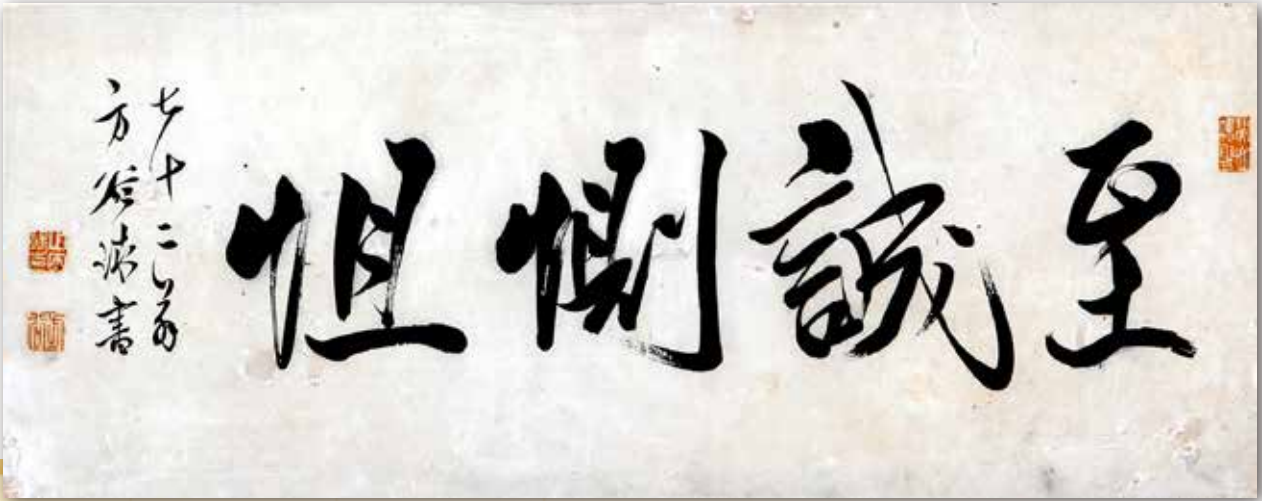 至誠惻怛
七十二翁
方谷球書